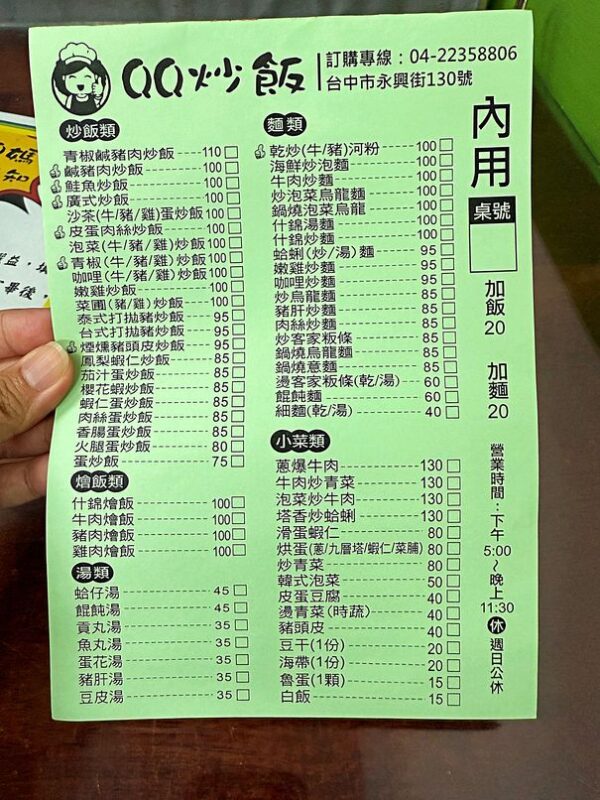 QQ炒飯
訂購專線：04-22358806
台中市永興街130號
炒飯類
青椒鹹豬肉炒飯 110
鹹豬肉炒飯 100
鮭魚炒飯 100
廣式炒飯 100
沙茶(牛/豬/雞)蛋炒飯 100
皮蛋肉絲炒飯 100
泡菜(牛/豬/雞)炒飯 100
青椒(牛/豬/雞)炒飯 100
咖哩(牛/豬/雞)炒飯 100
嫩雞炒飯 100
菜圃(豬/雞)炒飯 100
泰式打拋豬炒飯 95
台式打拋豬炒飯 95
煙燻豬頭皮炒飯 95
鳳梨蝦仁炒飯 85
茄汁蛋炒飯 85
櫻花蝦炒飯 85
蝦仁蛋炒飯 85
肉絲蛋炒飯 85
香腸蛋炒飯 85
火腿蛋炒飯 80
蛋炒飯 75
燴飯類
什錦燴飯 100
牛肉燴飯 100
豬肉燴飯 100
雞肉燴飯 100
湯類
蛤仔湯 45
餛飩湯 45
貢丸湯 35
魚丸湯 35
蛋花湯 35
豬肝湯 35
豆皮湯 35
麵類
乾炒(牛/豬)河粉 100
海鮮炒泡麵 100
牛肉炒麵 100
炒泡菜烏龍麵 100
鍋燒泡菜烏龍 100
什錦湯麵 100
什錦炒麵 100
蛤蜊(炒/湯)麵 95
嫩雞炒麵 95
咖哩炒麵 95
炒烏龍麵 85
豬肝炒麵 85
肉絲炒麵 85
炒客家粄條 85
鍋燒烏龍麵 85
鍋燒意麵 85
燙客家粄條(乾/湯) 60
餛飩麵 60
細麵(乾/湯) 40
小菜類
蔥爆牛肉 130
牛肉炒青菜 130
泡菜炒牛肉 130
塔香炒蛤蜊 130
滑蛋蝦仁 80
烘蛋(蔥/九層塔/蝦仁/菜脯) 80
炒青菜 80
韓式泡菜 50
皮蛋豆腐 40
燙青菜(時蔬) 40
豬頭皮 40
豆干(1份) 20
海帶(1份) 20
魯蛋(1顆) 15
白飯 15
內用
桌號
加飯20
加麵20
營業時間：下午5:00~晚上11:30
休 週日公休